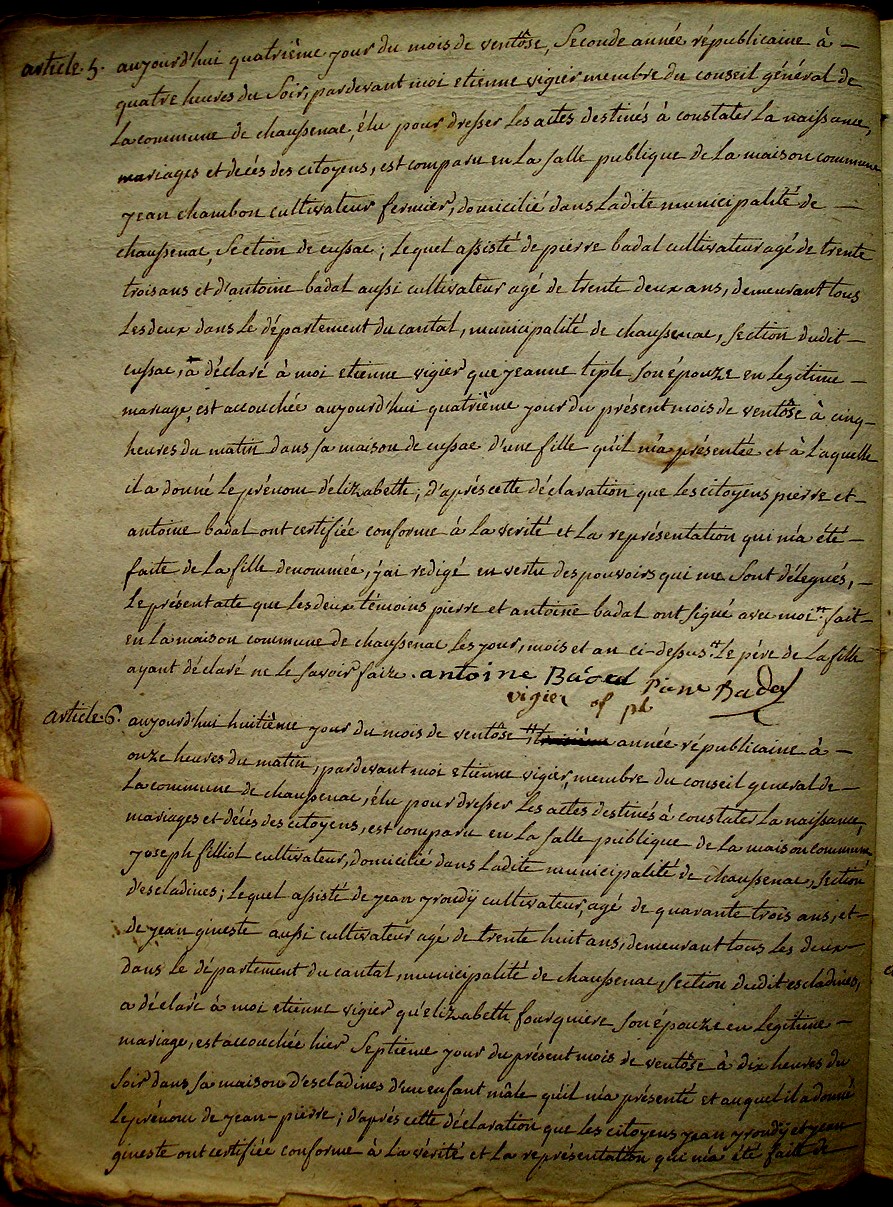 article 5. aujourd'hui quatrième jour du mois de ventôse, Seconde année républicaine à —
quatre heures du Soir, pardevant moi etienne vigier membre du conseil général de
la commune de chaussenac, élu pour dresser les actes destinés à constater la naissance,
mariages et décès des citoyens, est comparu en la salle publique de la maison commune
jean chambon cultivateur fermier, domicilié dans ladite municipalité de —
chaussenac, Section de cussac; lequel assisté de pierre badal cultivateur agé de trente
trois ans et d'antoine badal aussi cultivateur agé de trente deux ans, demeurant tous
les deux dans le département du cantal, municipalité de chaussenac, section dudit —
cussac, a déclaré à moi etienne vigier que jeanne tiple son épouze en legitime —
mariage, est accouchée aujourd'hui quatrième jour du présent mois de ventôse à cinq —
heures du matin dans sa maison de cussac d'une fille qu'il m'a présentée et à laquelle
il a donné le prénom d'élizabeth; d'après cette déclaration que les citoyens pierre et —
antoine badal ont certifiée conforme à la verité et la représentation qui m'a été —
faite de la fille denommée, j'ai redigé en vertu des pouvoirs qui me Sont délegués, —
le présent acte que les deux témoins pierre et antoine badal ont signé avec moi. fait —
en la maison commune de chaussenac les jour, mois et an ci-dessus. le père de la fille
ayant déclaré ne le savoir faire. antoine Badal Piere Badal
vigier of pb
article 6. aujourd'hui huitième jour du mois de ventôse troisième année républicaine à —
onze heures du matin, pardevant moi etienne vigier, membre du conseil general de —
la commune de chaussenac, élu pour dresser les actes destinés à constater la naissance,
mariages et décès des citoyens, est comparu en la salle publique de la maison commune
joseph filliol cultivateur, domicilié dans ladite municipalité de chaussenac, Section
d'escladines; lequel assisté de jean yroudÿ cultivateur, agé de quarante trois ans, et —
de jean gineste aussi cultivateur agé de trente huit ans, demeurant tous les deux —
dans le département du cantal, municipalité de chaussenac, section dudit escladines,
a déclaré à moi etienne vigier qu'elizabeth fourquiere son épouze en legitime —
mariage, est accouchée hier Septieme jour du présent mois de ventôse à dix heures du
soir dans sa maison d'escladines d'un enfant mâle qu'il m'a présenté et auquel il a donné
le prénom de jean-pierre; d'après cette déclaration que les citoyens jean yroudÿ et jean
gineste ont certifiée conforme à la vérité et la représentation qui m'a été faite de